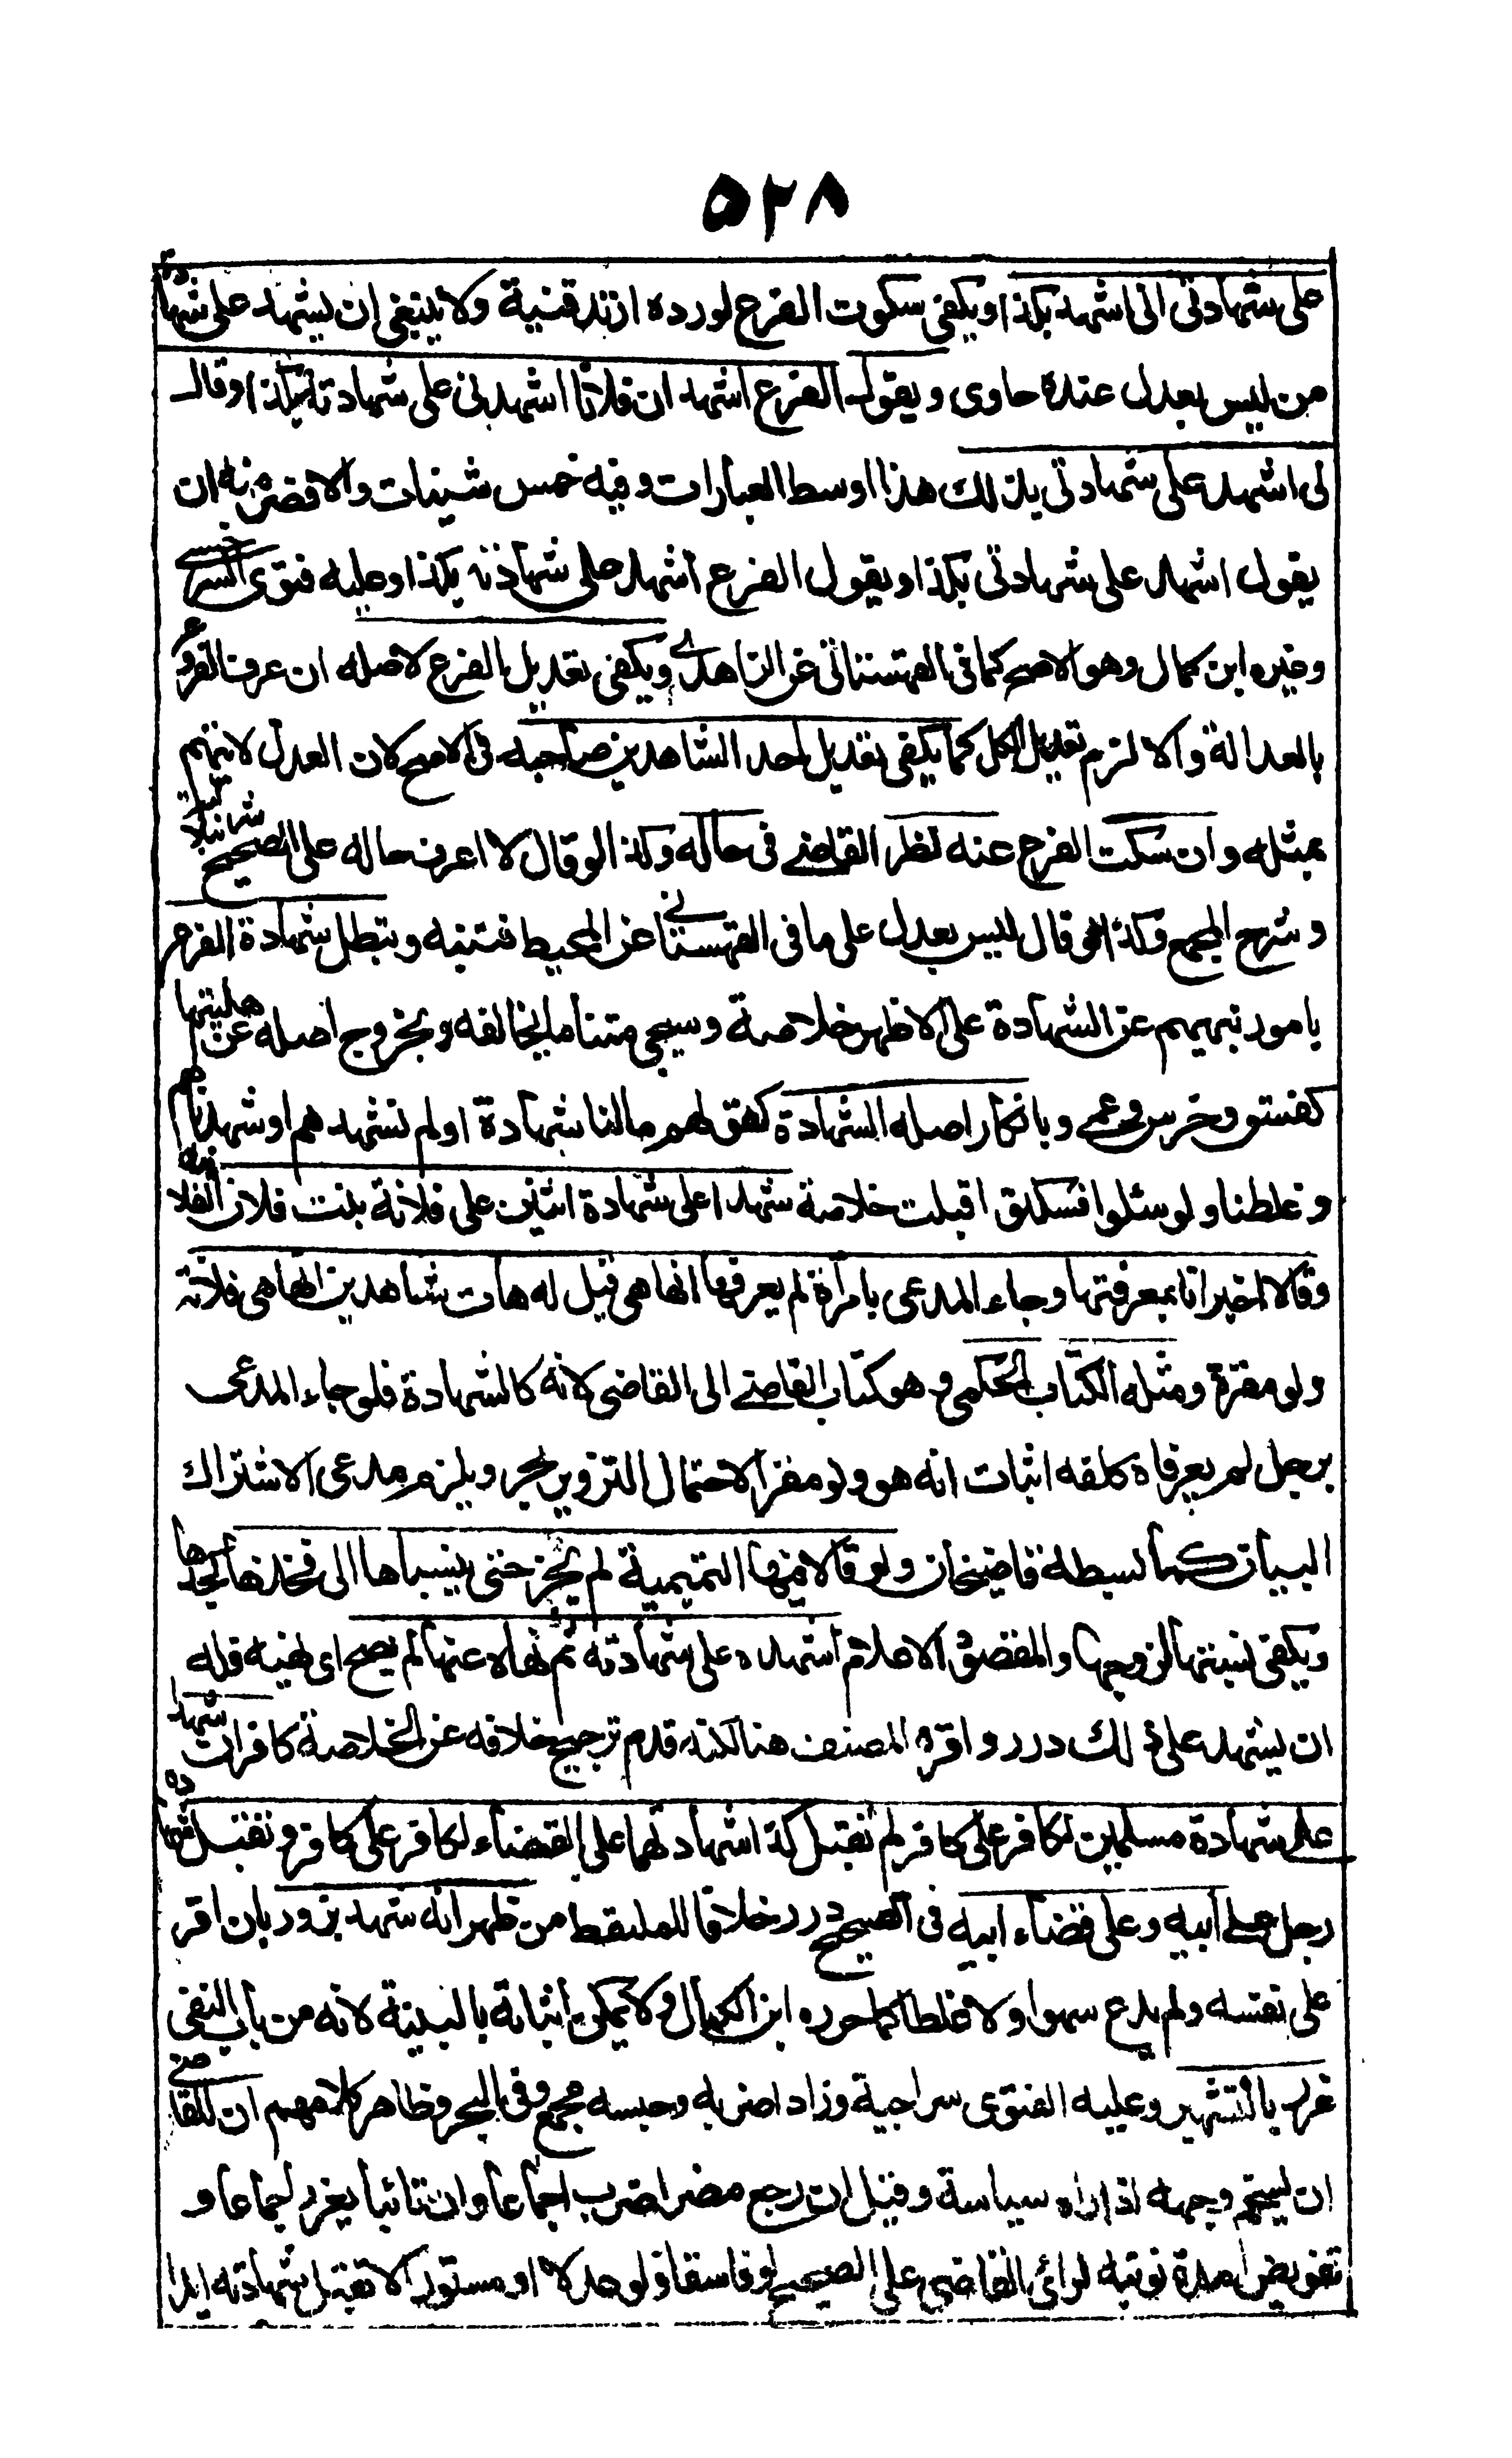 ٥٢٨
على شهادتى انى اشهد بكذا ويكفى سكوت الفرع لورده ارتد قنية ولا ينبغى ان يشهد على شهادة
من ليس بعدل عنده حاوى ويقول الفرع اشهد ان فلانا اشهدنى على شهادته بكذا وقال
لى اشهد على شهادتى بذلك هذا اوسط العبارات وفيه خمس شينات والاقصر منه ان
يقول اشهد على شهادتى بكذا ويقول الفرع اشهد على شهادته بكذا وعليه فتوى السرخسى
وغيره ابن كمال وهو الاصح كما فى القهستانى عن الزاهدى ويكفى تعديل الفرع لاصله ان عرف الفروع
بالعدالة والا لزم تعديل الكل كما يكفى تعديل احد الشاهدين صاحبه فى الاصح لان العدل لا يتهم
بمثله وان سكت الفرع عنه نظر القاضى فى حاله وكذا لو قال لا اعرف حاله على الصحيح شرنبلالية
وشرح المجمع وكذا لو قال ليس بعدل على ما فى القهستانى عن المحيط فتنبه وتبطل شهادة الفرع
بامور نهيهم عن الشهادة على الاظهر خلاصة وسيجى متنا ما يخالفه وبخروج اصله عن اهليتها
كفسق وخرس وعمى وبانكار اصله الشهادة كقولهم مالنا شهادة اولم نشهدهم او شهدناهم
وغلطنا ولو سئلوا فسكتوا قبلت خلاصة شهدا على شهادة اثنين على فلانة بنت فلان الفلانية
وقالا اخبرانا بمعرفتها وجاء المدعى بامرأة لم يعرفها انها هى قيل له هات شاهدين انها هى فلانة
ولو مقرة ومثله الكتاب الحكمى وهو كتاب القاضى الى القاضى لانه كالشهادة فلو جاء المدعى
برجل لم يعرفاه كلفه اثبات انه هو ولو مقرا لاحتمال التزوير بحر ويلزم مدعى الاشتراك
البيان كما بسطه قاضيخان ولو قالا فيها التميمية لم يجز حتى ينسباها الى فخذها كجدها
ويكفى نسبتها لزوجها والمقصود الاعلام اشهده على شهادته ثم نهاه عنها لم يصح اى نهيه فله
ان يشهد على ذلك درر واقره المصنف هنا لكنه قدم ترجيح خلافه عن الخلاصة كافران شهدا
على شهادة مسلمين لكافر على كافر لم تقبل كذا شهادتهما على القضاء لكافر على كافر وتقبل شهادة
رجل على ابيه وعلى قضاء ابيه فى الصحيح درر خلافا للملتقط من ظهر انه شهد بزور بان اقر
على نفسه ولم يدع سهوا ولا غلطا كما حرره ابن الكمال ولا يمكن اثباته بالبينة لانه من باب النفى
عزر بالتشهير وعليه الفتوى سراجية وزادا ضربه وحبسه مجمع وفى البحر وظاهر كلامهم ان للقاضى
ان يسحم وجهه اذا راه سياسة وقيل ان رجع مصرا ضرب اجماعا وان تائبا يعزر اجماعا و
تفويض مدة توبته لرأى القاضى على الصحيح لو فاسقا ولو عدلا او مستورا لا تقبل شهادته ابدا